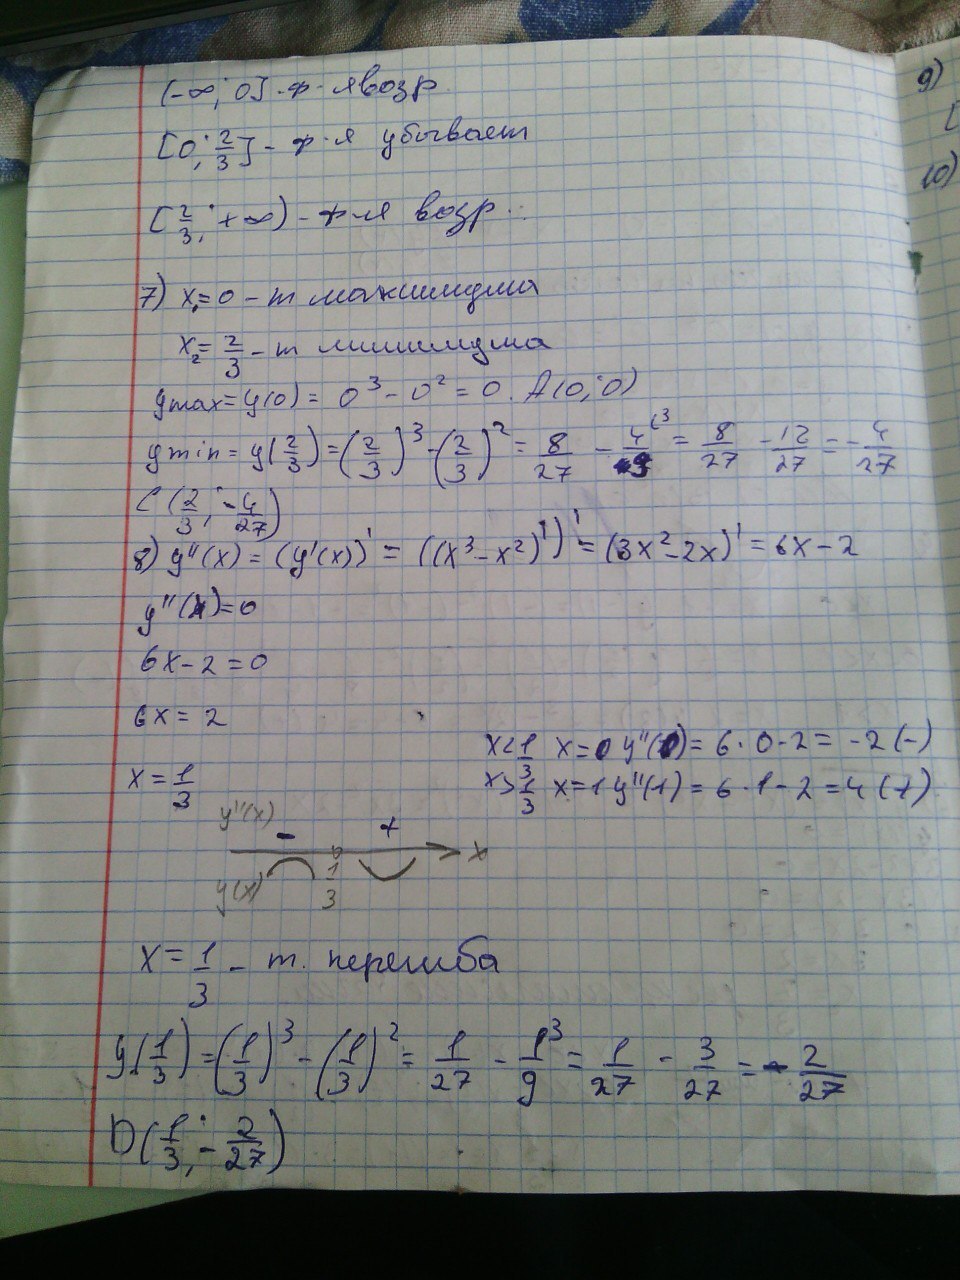 (-∞; 0] - ф-я возр.
[0; 2/3] - ф-я убывает
[2/3; +∞) - ф-я возр.
7) x₁=0 - т максимума
x₂=2/3 - т минимума
ymax = y(0) = 0³ - 0² = 0. A(0; 0)
ymin = y(2/3) = (2/3)³ - (2/3)² = 8/27 - 4/9 ⁽³ = 8/27 - 12/27 = -4/27
C (2/3; -4/27)
8) y''(x) = (y'(x))' = ((x³-x²)')' = (3x²-2x)' = 6x-2
y''(x)=0
6x-2=0
6x=2
x=1/3
x<1/3 x=0 y''(0) = 6·0-2 = -2 (-)
x>1/3 x=1 y''(1) = 6·1-2 = 4 (+)
y''(x) - +
x
y(x) 1/3
x = 1/3 - т. перегиба
y(1/3) = (1/3)³ - (1/3)² = 1/27 - 1/9 ³ = 1/27 - 3/27 = -2/27
D(1/3; -2/27)
9)
[
10)